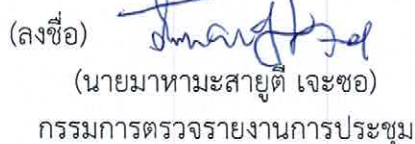 (ลงชื่อ)
(นายมาหามะสายูตี เจะซอ)
กรรมการตรวจรายงานการประชุม